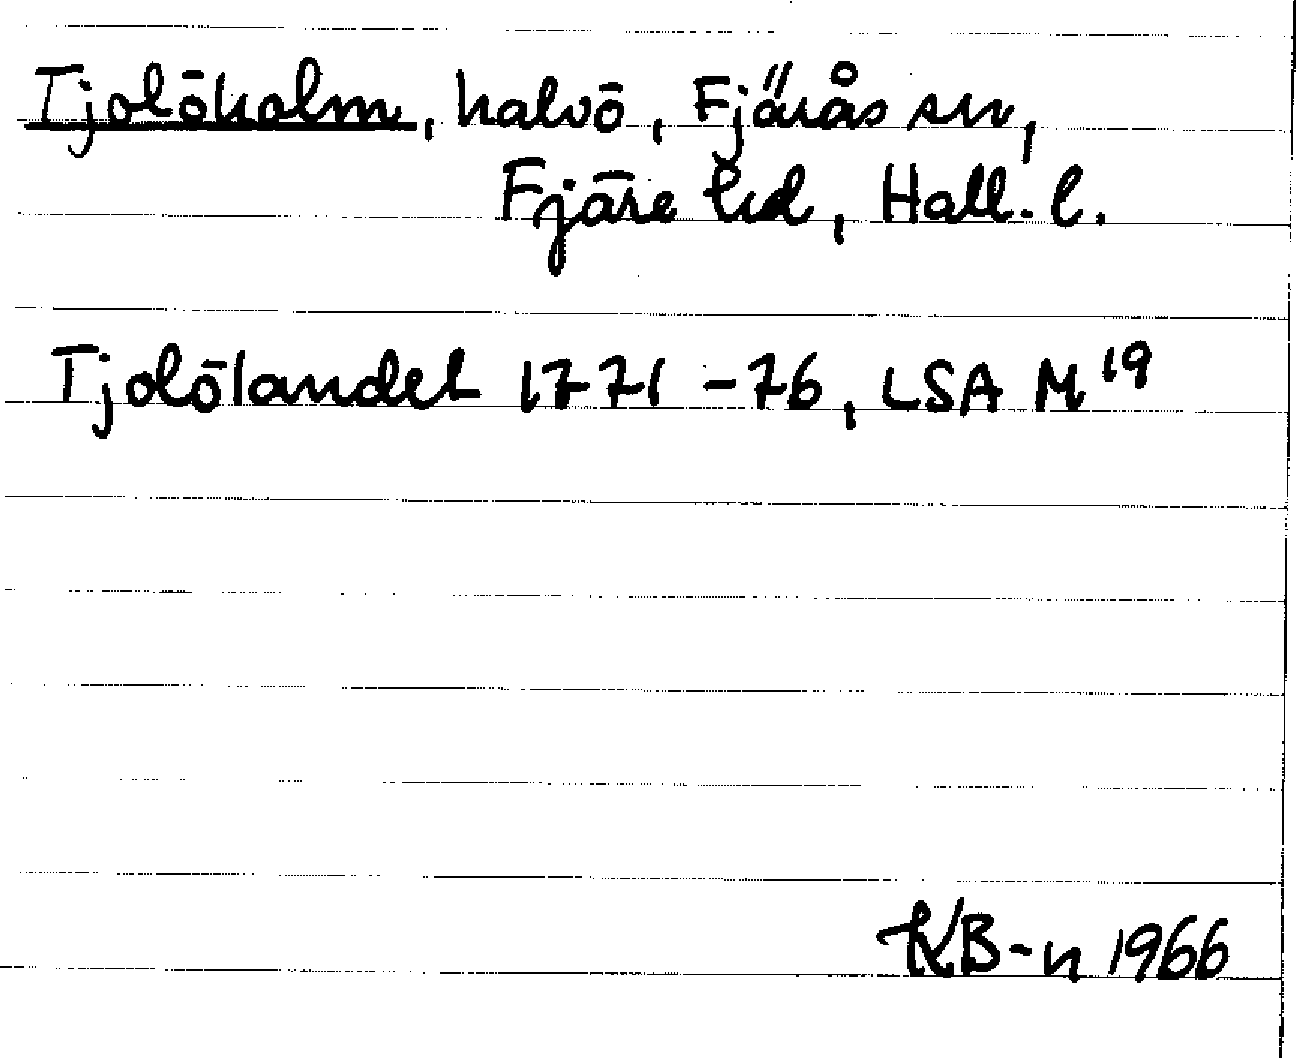 Tjolöholm, halvö, Fjärås sn,
Fjäre hd, Hall. l.
Tjolölandet 1771-76, LSA M¹⁹
KB-n 1966